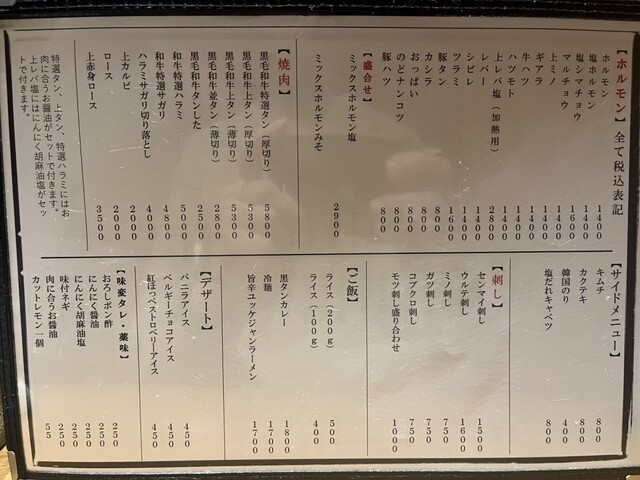 【ホルモン】全て税込表記
ホルモン 1400
塩ホルモン 1400
塩シマチョウ 1400
マルチョウ 1600
上ミノ 1400
ギアラ 1400
牛ハツ 1400
ハツモト 1400
上レバ塩（加熱用） 2800
レバー 1400
シビレ 1400
ツラミ 1600
豚タン 800
カシラ 800
おっぱい 800
のどナンコツ 800
豚ハツ 800
【盛合せ】
ミックスホルモン塩
ミックスホルモンみそ 2900
【焼肉】
黒毛和牛特選タン（厚切り） 5800
黒毛和牛上タン（厚切り） 5300
黒毛和牛上タン（薄切り） 5300
黒毛和牛並タン（薄切り） 2800
黒毛和牛タンした 2500
和牛特選ハラミ 5000
和牛特選サガリ 4800
ハラミサガリ切り落とし 4000
上カルビ 2000
ロース 2000
上赤身ロース 3500
特選タン、上タン、特選ハラミにはお
肉に合うお醤油がセットで付きます。
上レバ塩にはにんにく胡麻油塩がセッ
トで付きます。
【サイドメニュー】
キムチ 800
カクテキ 800
韓国のり 400
塩だれキャベツ 800
【刺し】
センマイ刺し 1500
ウルテ刺し 1600
ミノ刺し 750
ガツ刺し 750
コブクロ刺し 750
モツ刺し盛り合わせ 1000
【ご飯】
ライス（200g） 500
ライス（100g） 400
黒タンカレー 1800
冷麺 1700
旨辛ユッケジャンラーメン 1700
【デザート】
バニラアイス 450
ベルギーチョコアイス 450
紅ほっぺストロベリーアイス 450
【味変タレ・薬味】
おろしポン酢 250
にんにく醤油 250
にんにく胡麻油塩 250
味付ネギ 250
肉に合うお醤油 250
カットレモン一個 55